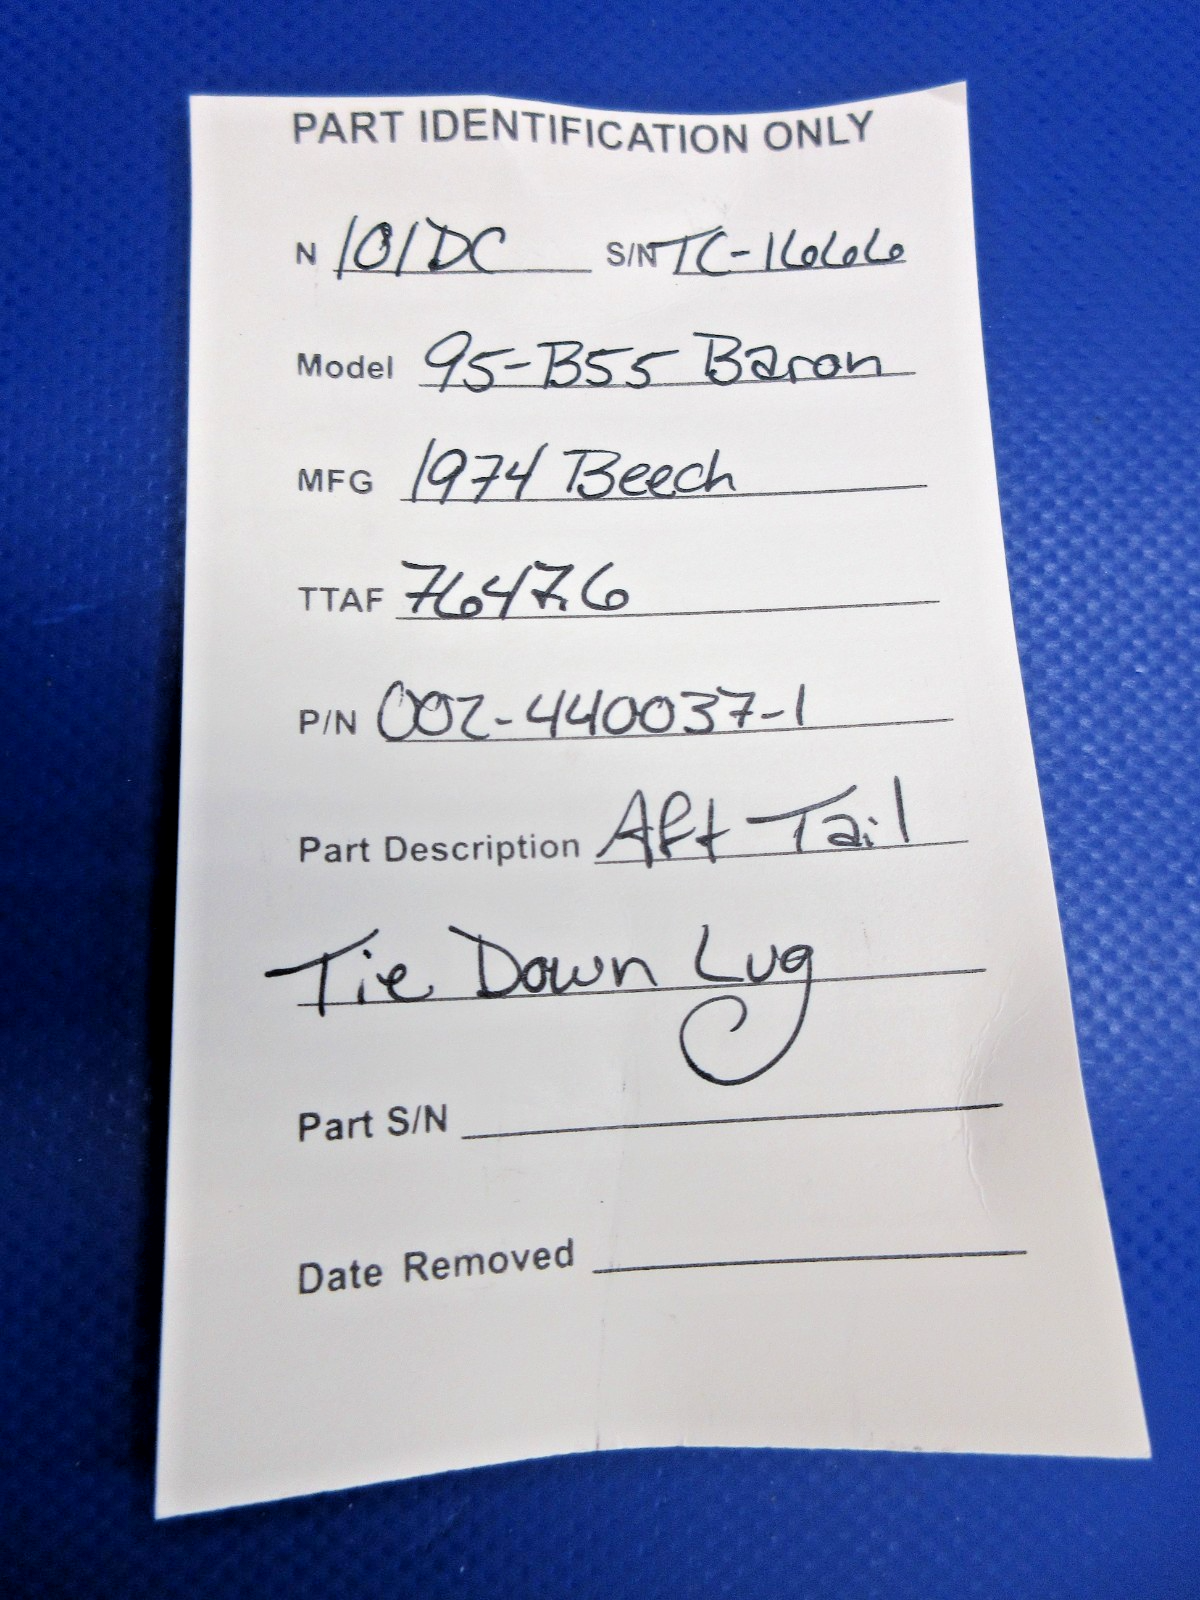 PART IDENTIFICATION ONLY
N 101DC S/N TC-1666
Model 95-B55 Baron
MFG 1974 Beech
TTAF 7647.6
P/N 002-440037-1
Part Description Aft Tail
Tie Down Lug
Part S/N
Date Removed